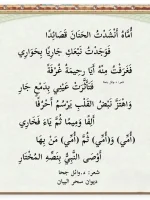 أُمَّاهُ أَنْشَدْتُ الحَنَانَ قَصَائِدًا
فَوَجَدْتُ نَبْعَكِ جَارِيًا بِجِوَارِي
فَغَرَفْتُ مِنْهُ أَيَا رَحِيمَةُ غُرْفَةً
فَتَأَثَّرَتْ عَيْنِي بِدَمْعٍ جَارِ
وَاهْتَزَّ نَبْضُ القَلْبِ يَرْسُمُ أَحْرُفًا
أَلِفًا وَمِيمًا ثُمَّ يَاءَ فَخَارِي
(أُمِّي) وَ(أُمِّي) ثُمَّ (أُمِّي) مَنْ بِهَا
أَوْصَى النَّبِيُّ بِنَصِّهِ المُخْتَارِ
شعر: د. وائل جحا
ديوان سحر البيان